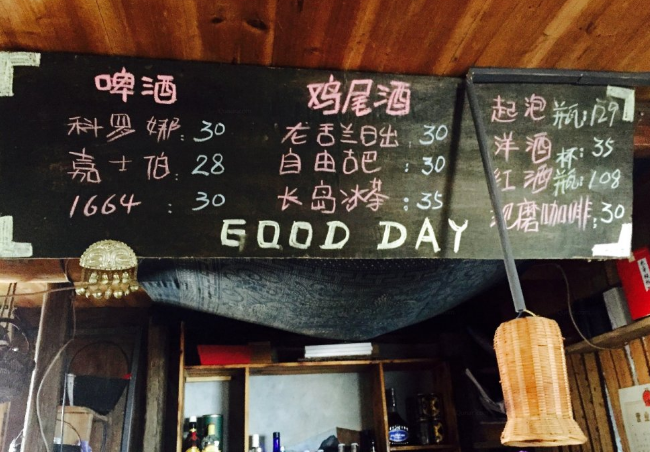 啤酒
科罗娜:30
嘉士伯:28
1664:30
鸡尾酒
龙舌兰日出:30
自由古巴:30
长岛冰茶:35
起泡 瓶:129
洋酒 杯:35
红酒 瓶:108
现磨咖啡:30
GOOD DAY